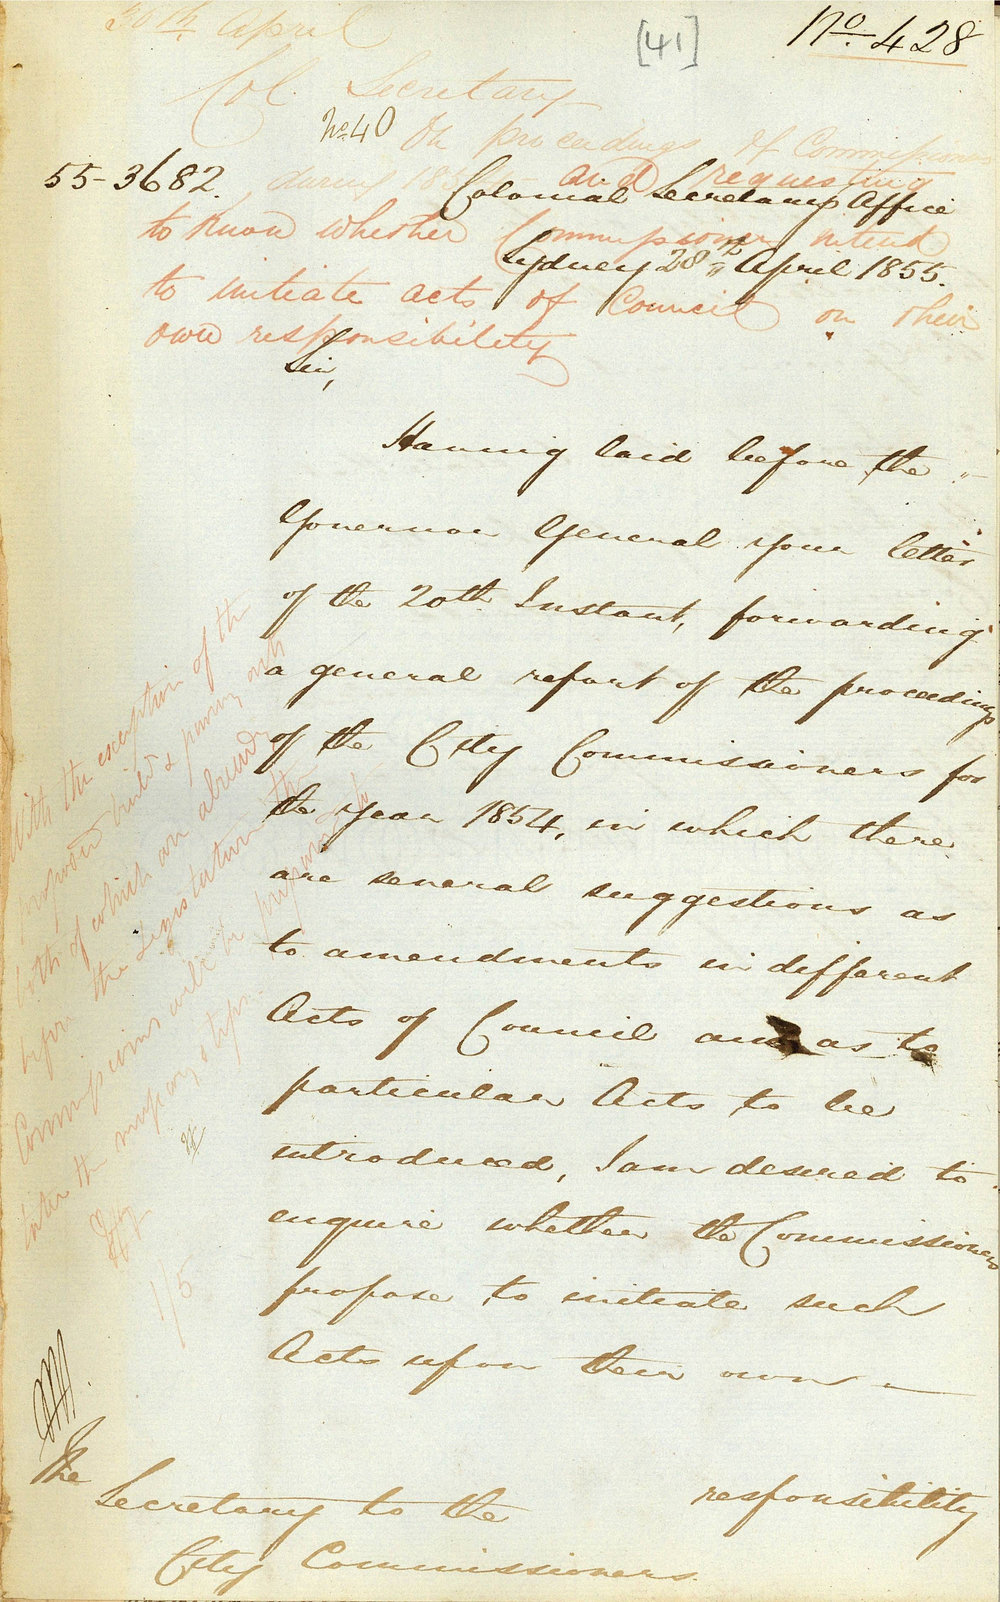 30th April
[41]
No. 428
Col. Secretary
No 40
On proceedings of Commissioners
55-3682
during and requesting
Colonial Secretary's Office
to know whether Commissioners intend
Sydney 28th April 1855.
to initiate acts of Council on their
own responsibility
Sir,
Having laid before the
Governor General your letter
of the 20th Instant, forwarding
a general report of the proceedings
of the City Commissioners for
the year 1854, in which there
are several suggestions as
to amendments in different
Acts of Council and as to
particular Acts to be
introduced, I am desired to
enquire whether the Commissioners
propose to initiate such
Acts upon their own
responsibility
The
Secretary to the
City Commissioners.
With the exception of the
both of which are already
before the Legislature the
Commissioners will be prepared to
take the necessary steps.
1/5